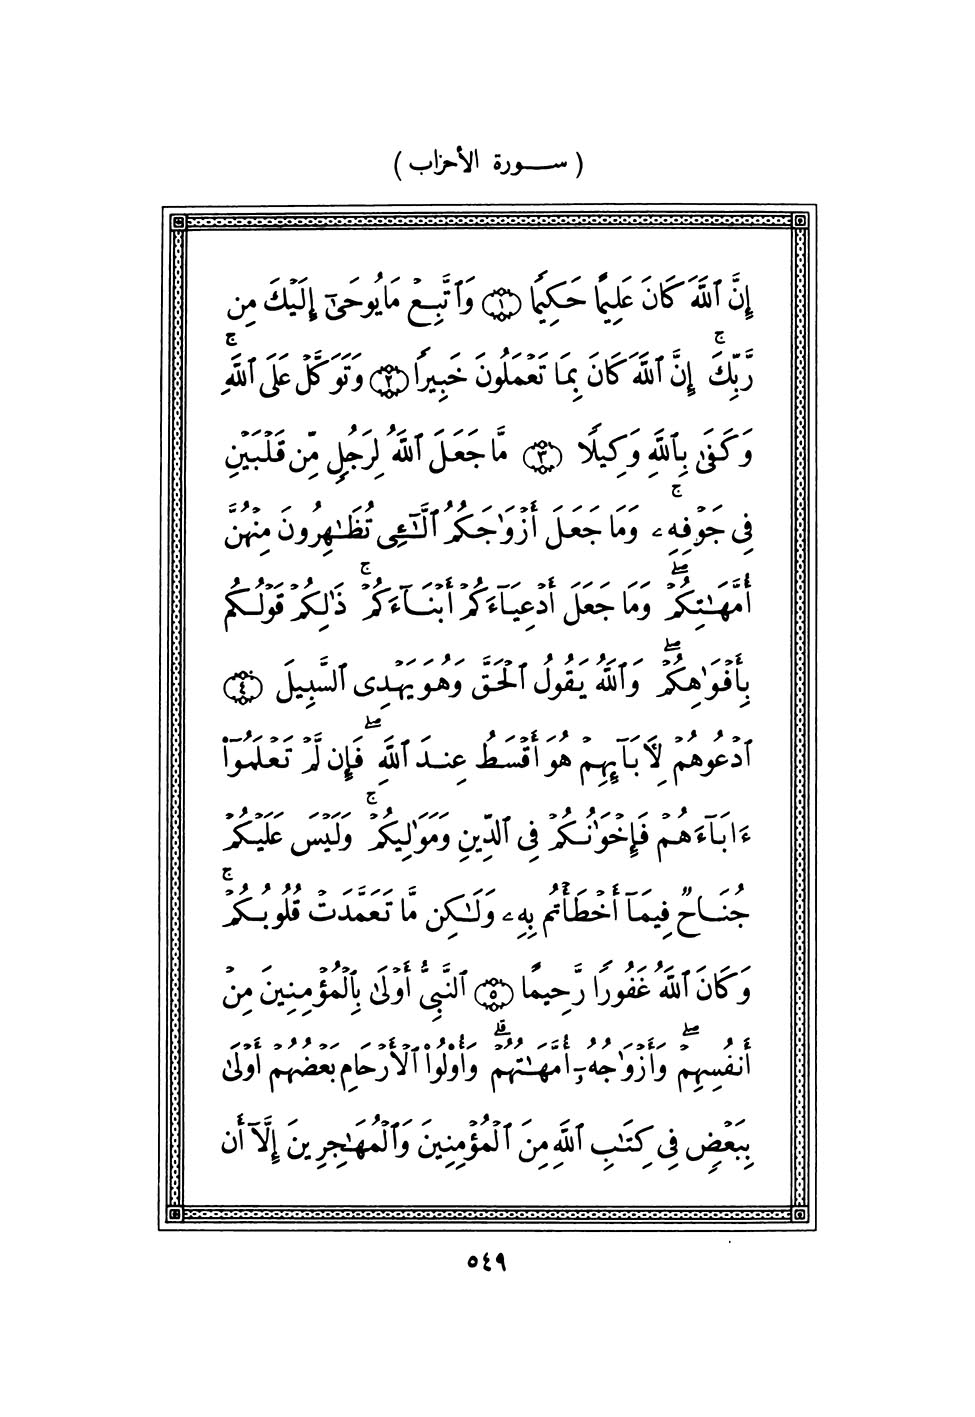 ( سورة الأحزاب )
إِنَّ ٱللَّهَ كَانَ عَلِيمًا حَكِيمًا ١ وَٱتَّبِعْ مَا يُوحَىٰٓ إِلَيْكَ مِن
رَّبِّكَ ۚ إِنَّ ٱللَّهَ كَانَ بِمَا تَعْمَلُونَ خَبِيرًا ٢ وَتَوَكَّلْ عَلَى ٱللَّهِ ۚ
وَكَفَىٰ بِٱللَّهِ وَكِيلًا ٣ مَّا جَعَلَ ٱللَّهُ لِرَجُلٍ مِّن قَلْبَيْنِ
فِى جَوْفِهِۦ ۚ وَمَا جَعَلَ أَزْوَٰجَكُمُ ٱلَّـٰٓـِٔى تُظَـٰهِرُونَ مِنْهُنَّ
أُمَّهَـٰتِكُمْ ۖ وَمَا جَعَلَ أَدْعِيَآءَكُمْ أَبْنَآءَكُمْ ۚ ذَٰلِكُمْ قَوْلُكُم
بِأَفْوَٰهِكُمْ ۖ وَٱللَّهُ يَقُولُ ٱلْحَقَّ وَهُوَ يَهْدِى ٱلسَّبِيلَ ٤
ٱدْعُوهُمْ لِـَٔابَآئِهِمْ هُوَ أَقْسَطُ عِندَ ٱللَّهِ ۖ فَإِن لَّمْ تَعْلَمُوٓا۟
ءَابَآءَهُمْ فَإِخْوَٰنُكُمْ فِى ٱلدِّينِ وَمَوَٰلِيكُمْ ۚ وَلَيْسَ عَلَيْكُمْ
جُنَاحٌ فِيمَآ أَخْطَأْتُم بِهِۦ وَلَـٰكِن مَّا تَعَمَّدَتْ قُلُوبُكُمْ ۚ
وَكَانَ ٱللَّهُ غَفُورًا رَّحِيمًا ٥ ٱلنَّبِىُّ أَوْلَىٰ بِٱلْمُؤْمِنِينَ مِنْ
أَنفُسِهِمْ ۖ وَأَزْوَٰجُهُۥٓ أُمَّهَـٰتُهُمْ ۗ وَأُو۟لُوا۟ ٱلْأَرْحَامِ بَعْضُهُمْ أَوْلَىٰ
بِبَعْضٍ فِى كِتَـٰبِ ٱللَّهِ مِنَ ٱلْمُؤْمِنِينَ وَٱلْمُهَـٰجِرِينَ إِلَّآ أَن
٥٤٩